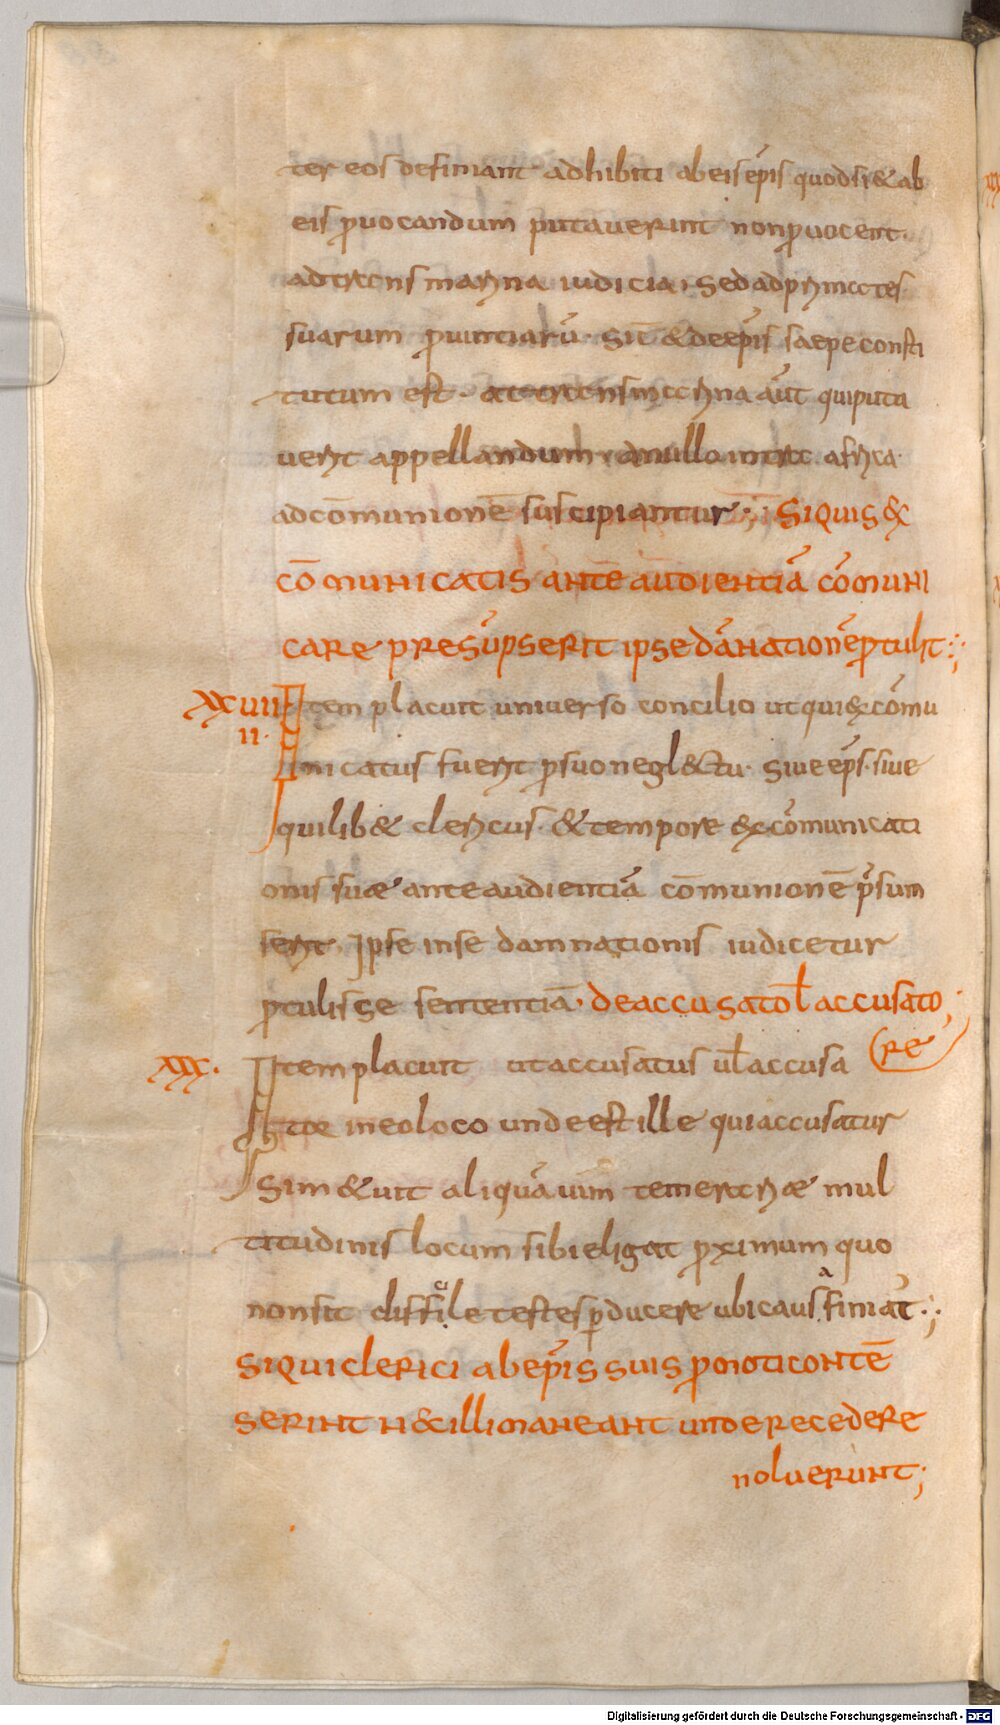 ter eos definiant adhibiti ab eis ep̄is quodsi & ab
eis ꝓuocandum putauerint non ꝓuocent.
ad transmarina iudicia. Sed ad primates
suarum ꝓuintiarū. Sic̄ & de ep̄is saepe consti
tutum est. ad transmarina aūt qui puta
uerit appellandum. a nullo intra africa
ad cōmunionē suscipiantur. Si quis &
cōmunicatis ante audientiā cōmuni
care presūpserit ipse dānationē ꝓtulit:
XXVIII Item placuit uniuerso concilio ut qui excōmu
II. nicatus fuerit ꝓ suo negl&tu. Siue ep̄s. siue
quilib& clericus. & tempore excōmunicati
onis suae ante audientiā cōmunionē p̄sum
serit. Ipse in se damnationis iudicetur
ꝓtulisse sententiā. de accusato ł accusato
re
XXX. Item placuit ut accusatus uł accusa
tor in eo loco unde est ille qui accusatur
Si m&uit aliquā uim temerariae mul
titudinis locum sibi eligat ꝓximum quo
non sit difficile testes ꝑducere ubi causa finiat̄.
Si qui clerici ab ep̄is suis ꝓmoti contē
serint n& illi maneant unde recedere
noluerunt;
Digitalisierung gefördert durch die Deutsche Forschungsgemeinschaft - DFG